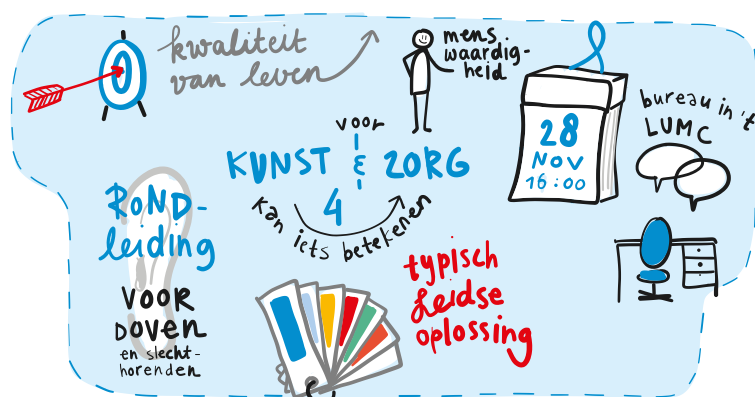 kwaliteit
van leven
mens.
waardig-
heid
28
NOV
16:00
bureau in 't
LUMC
voor
KUNST & ZORG
4
kan iets betekenen
RONDL-
leiding
VOOR
DOVEN
en slecht-
horenden
typisch
Leidse
oplossing